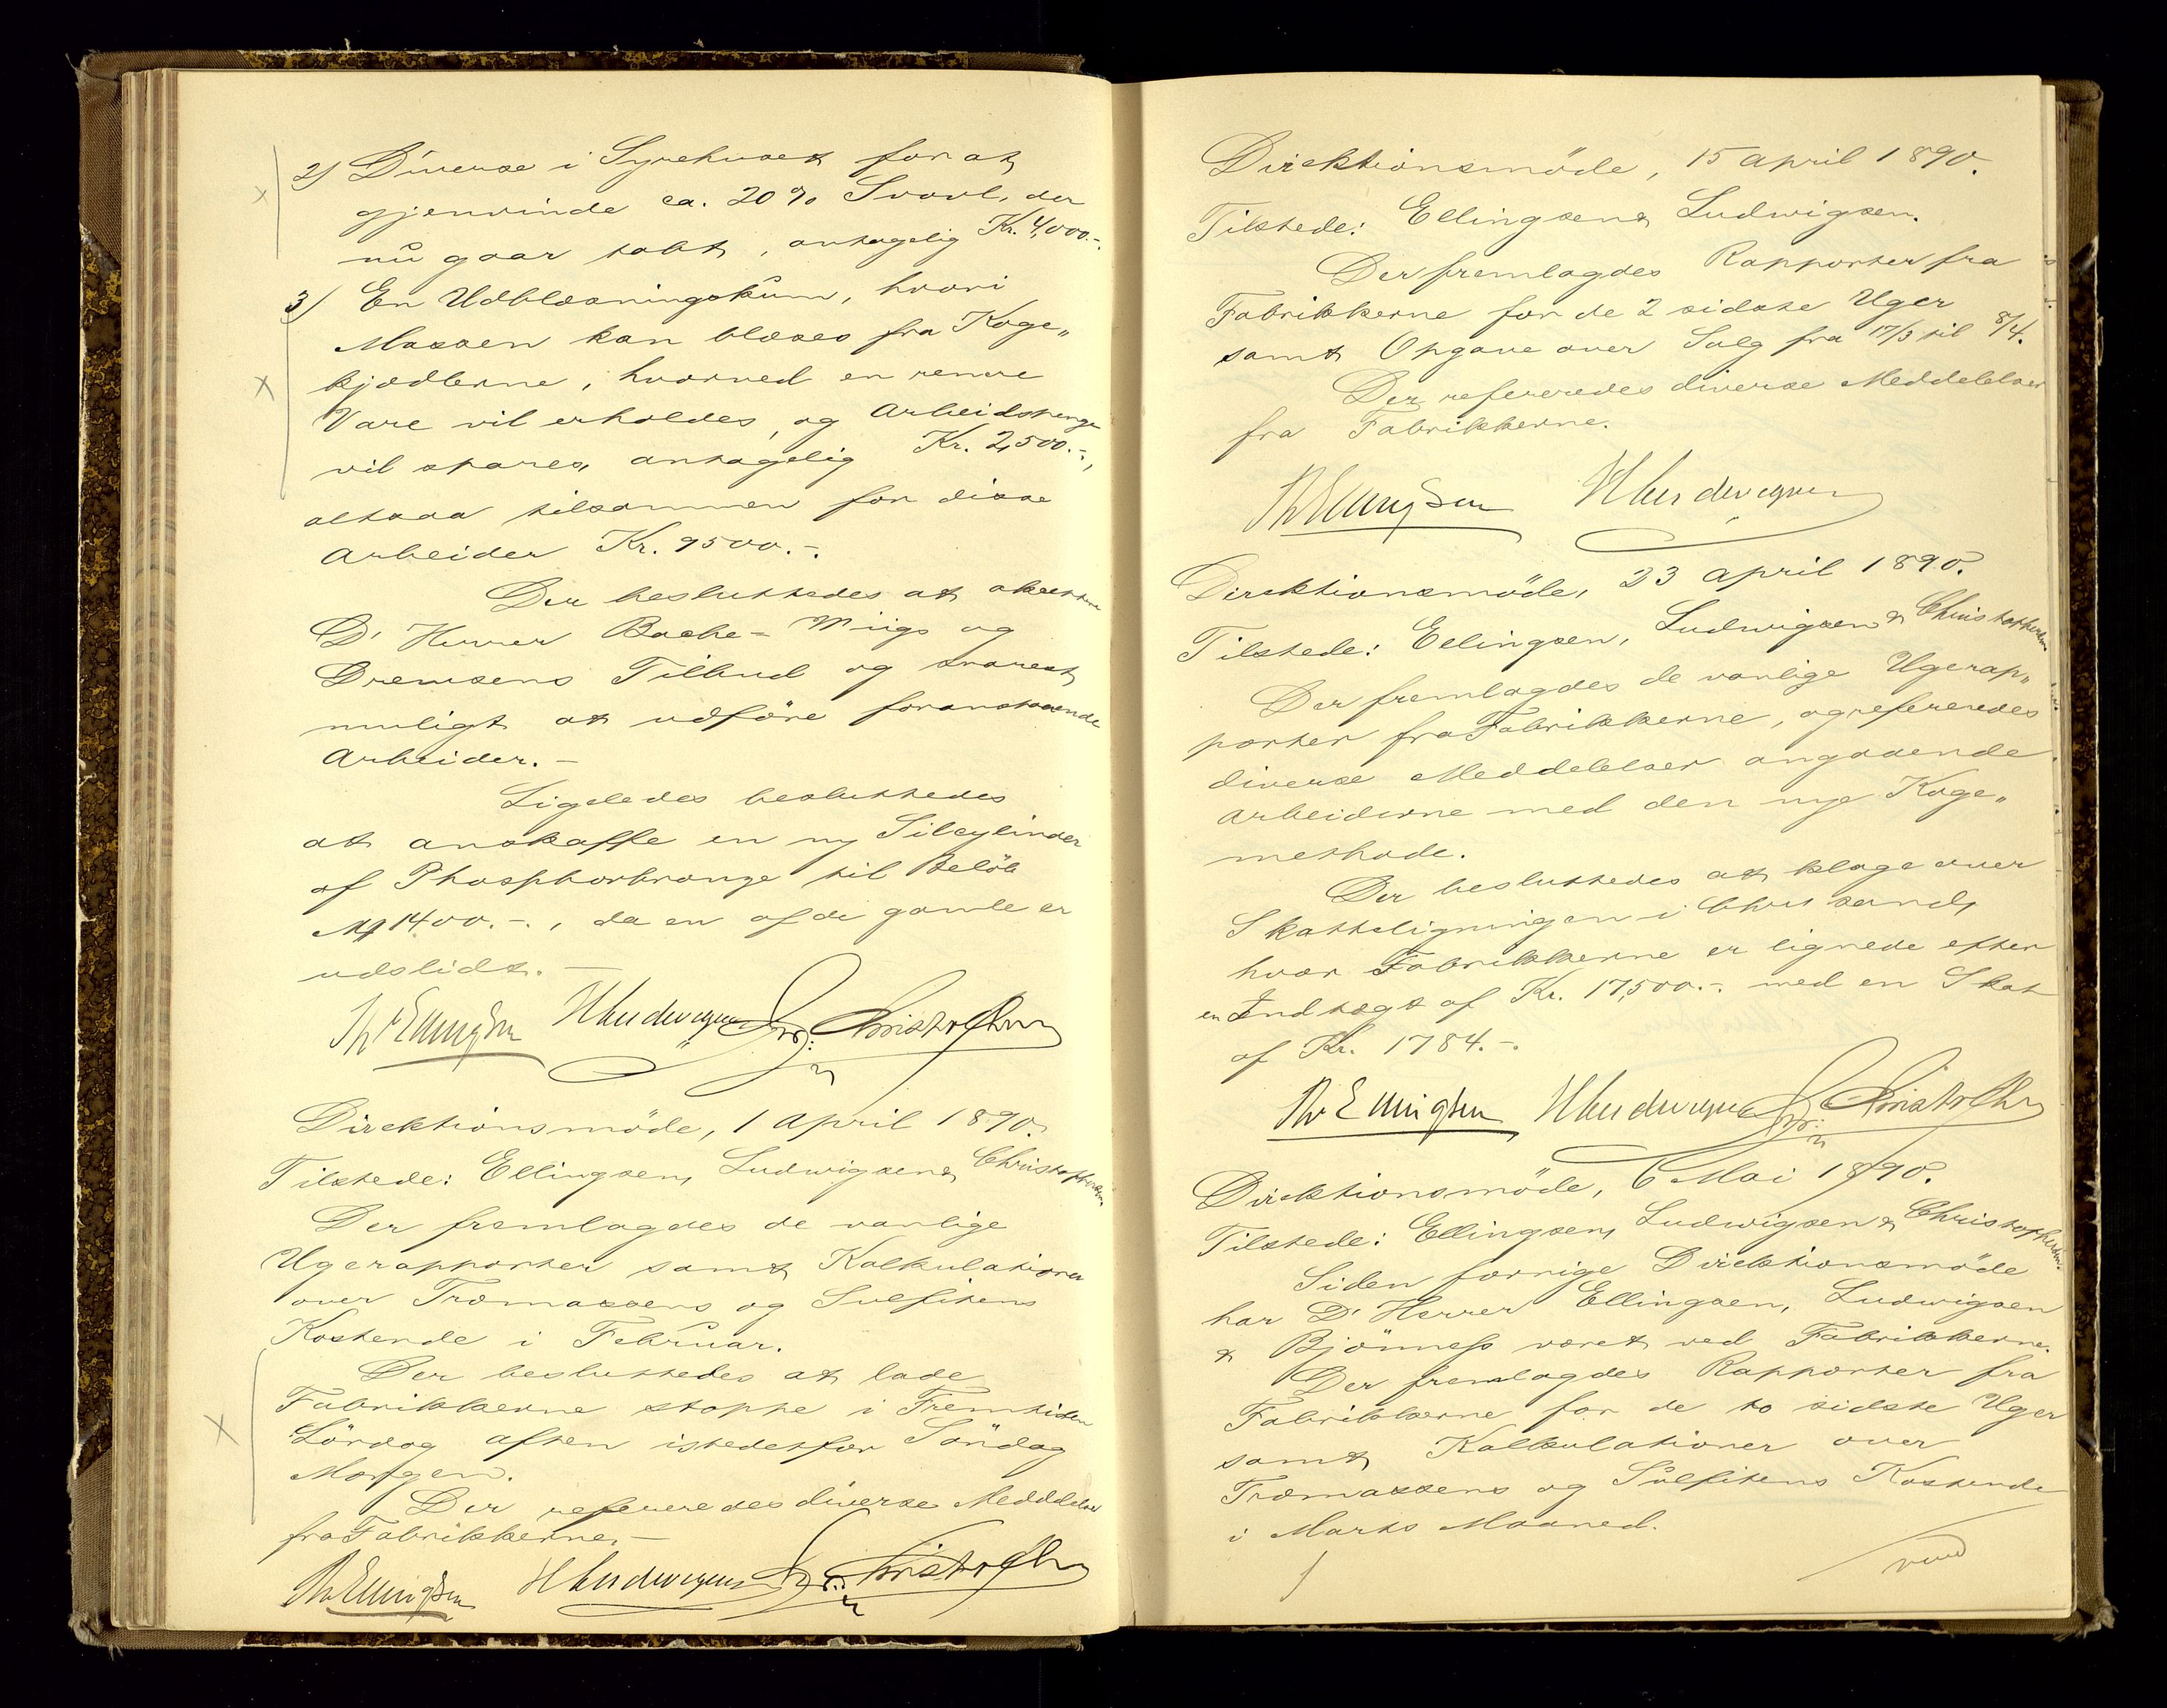 2) Diverse i Syrehuset for at
gjenvinde ca. 20 % Svovl, der
nu gaar tabt, antagelig Kr. 4,000.-.
3) En Udblæsningskum, hvori
Massen kan blæses fra Koge„
kjedlerne, hvorved en renere
Vare vil erholdes, og Arbeidspenge
vil spares, antagelig Kr. 2,500.-,
altsaa tilsammen for disse
Arbeider Kr. 9500.-.
Der besluttedes at akceptere
D' Herrer Bache-Wiigs og
Drewsens Tilbud og snarest
muligt at udföre foranstaaende
Arbeider.-
Ligeledes besluttedes
at anskaffe en ny Silcylinder
af Phosphorbronze til Belöb
M 1400.-., da en af de gamle er
udslidt.-
Th Ellingsen H Ludwigsen Chr. Christophersen
Direktionsmöde, 1 April 1890.
Tilstede: Ellingsen, Ludwigsen & Christophersen.
Der fremlagdes de vanlige
Ugerapporter samt Kalkulationer
over Træmassens og Sulfitens
Kostende i Februar.
Der besluttedes at lade
Fabrikkerne stoppe i Fremtiden
Lördag aften istedetfor Söndag
Morgen.
Der refereredes diverse Meddelelser
fra Fabrikkerne.-
Th Ellingsen H Ludwigsen Chr. Christophersen
Direktionsmöde, 15 April 1890.
Tilstede: Ellingsen & Ludwigsen.
Der fremlagdes Rapporter fra
Fabrikkerne for de 2 sidste Uger
samt Opgave over Salg fra 17/3 til 8/4.
Der refereredes diverse Meddelelser
fra Fabrikkerne.
Th Ellingsen H Ludwigsen
Direktionsmöde, 23 April 1890.
Tilstede: Ellingsen, Ludwigsen & Christophersen
Der fremlagdes de vanlige Ugerap„
porter fra Fabrikkerne, og refereredes
diverse Meddelelser angaaende
Arbeiderne med den nye Koge„
methode.
Der besluttedes at klage over
Skatteligningen i Chrsand,
hvor Fabrikkerne er lignede efter
en Indtægt af Kr. 17,500.-. med en Skat
af Kr. 1784.-.
Th Ellingsen H Ludwigsen Chr. Christophersen
Direktionsmöde, 6 Mai 1890.
Tilstede: Ellingsen, Ludwigsen & Christophersen.
Siden forrige Direktionsmöde
har D' Herrer Ellingsen, Ludwigsen
& Bjönness været ved Fabrikkerne.
Der fremlagdes Rapporter fra
Fabrikkerne for de to sidste Uger
samt Kalkulationer over
Træmassens og Sulfitens Kostende
i Marts Maaned.
vend